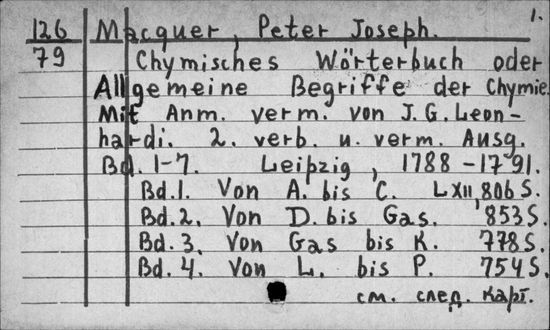 1.
126 Macquer, Peter Joseph.
79 Chymisches Wörterbuch oder
Allgemeine Begriffe der Chymie.
Mit Anm. verm. von J. G. Leon-
hardi. 2. verb. u. verm. Ausg.
Bd. 1-7. Leipzig, 1788-1791.
Bd. 1. Von A. bis C. LXII, 806 S.
Bd. 2. Von D. bis Gas. 853 S.
Bd. 3. Von Gas bis K. 778 S.
Bd. 4. Von L. bis P. 754 S.
см. след. карт.